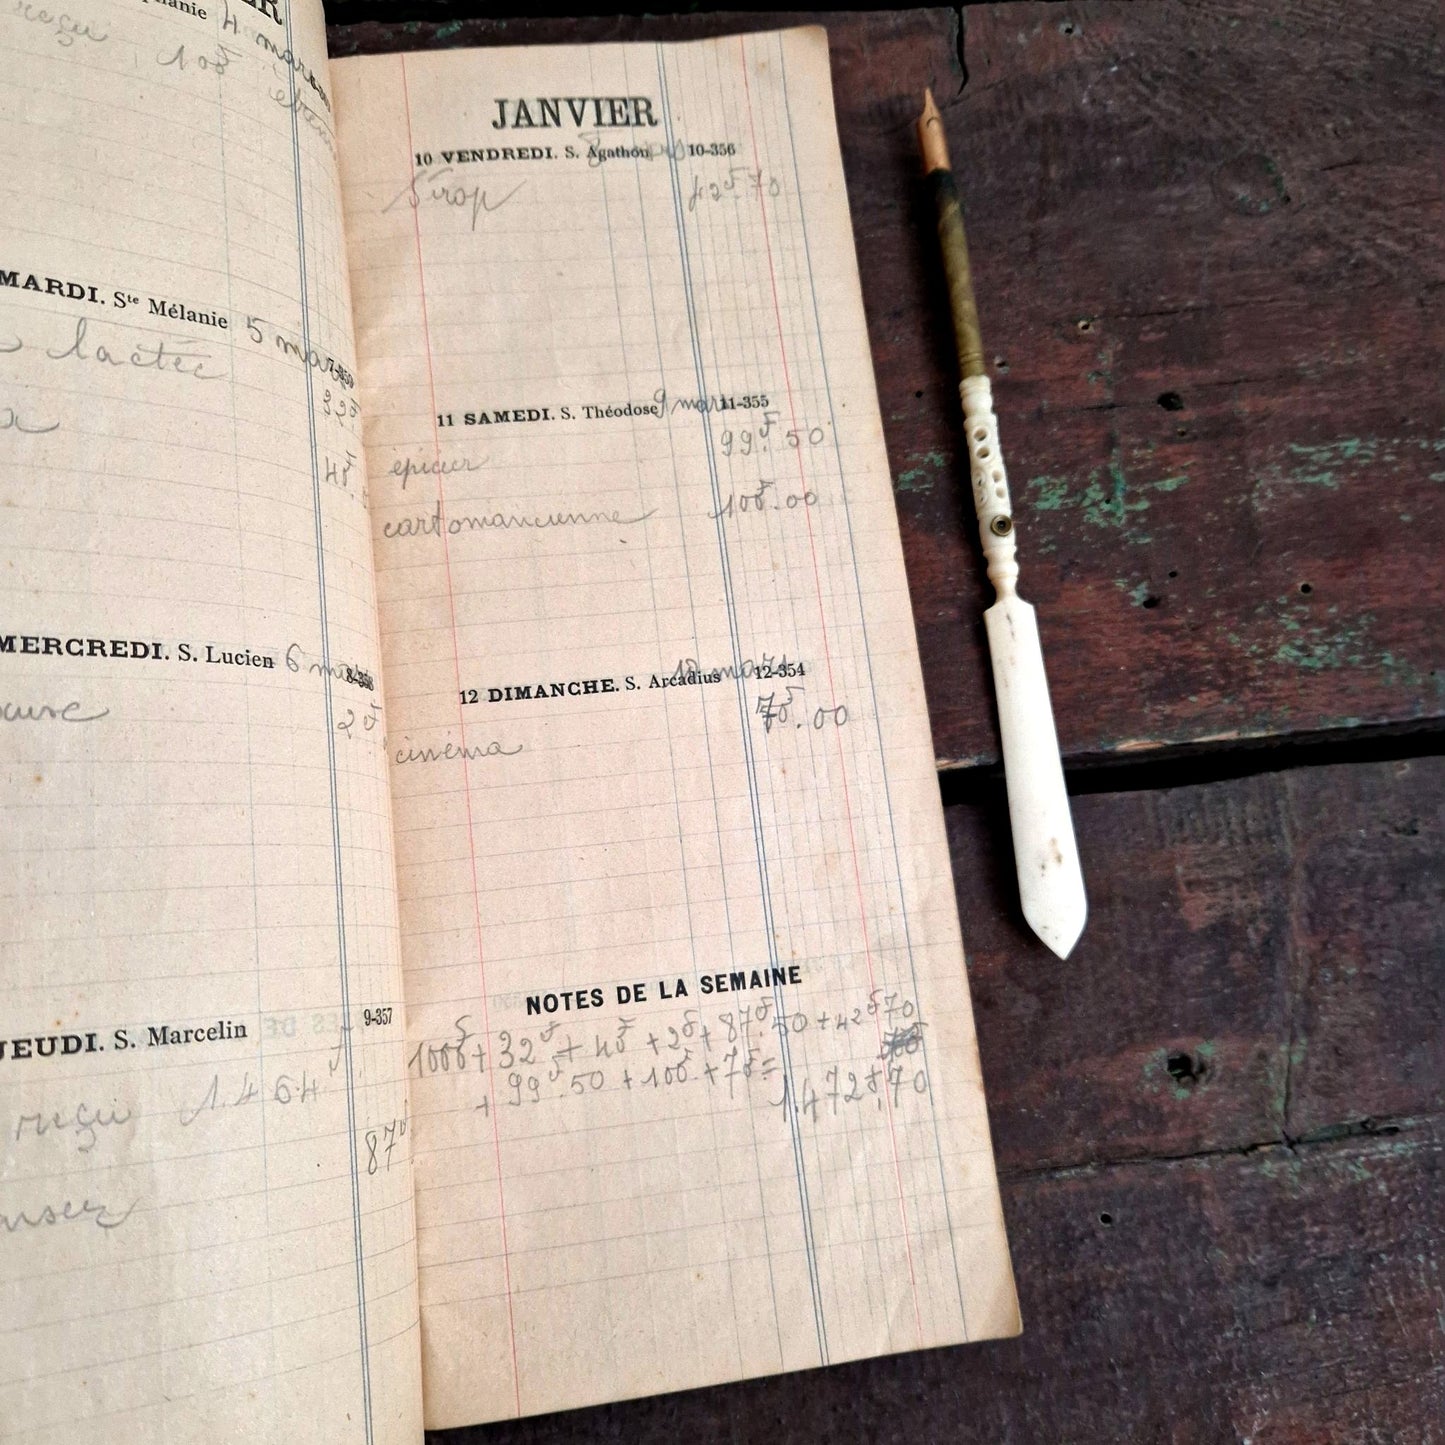 4 mars
reçu
MARDI. Sᵗᵉ Mélanie 5 mars
lactée
32F
4F
MERCREDI. S. Lucien 6 mars 8-358
2F
JEUDI. S. Marcelin 9-357
reçu 1.464F
87F
JANVIER
10 VENDREDI. S. Agathon 10-356
Sirop 42F.70
11 SAMEDI. S. Théodose 9 mars 11-355
99F.50
épicier
cartomancienne 100F.00
12 DIMANCHE. S. Arcadius 10 mars 12-354
70F.00
cinéma
NOTES DE LA SEMAINE
+ 32F + 4F + 2F + 87F.50 + 42F70
+ 99F.50 + 100F + 70F =
1.472F,70